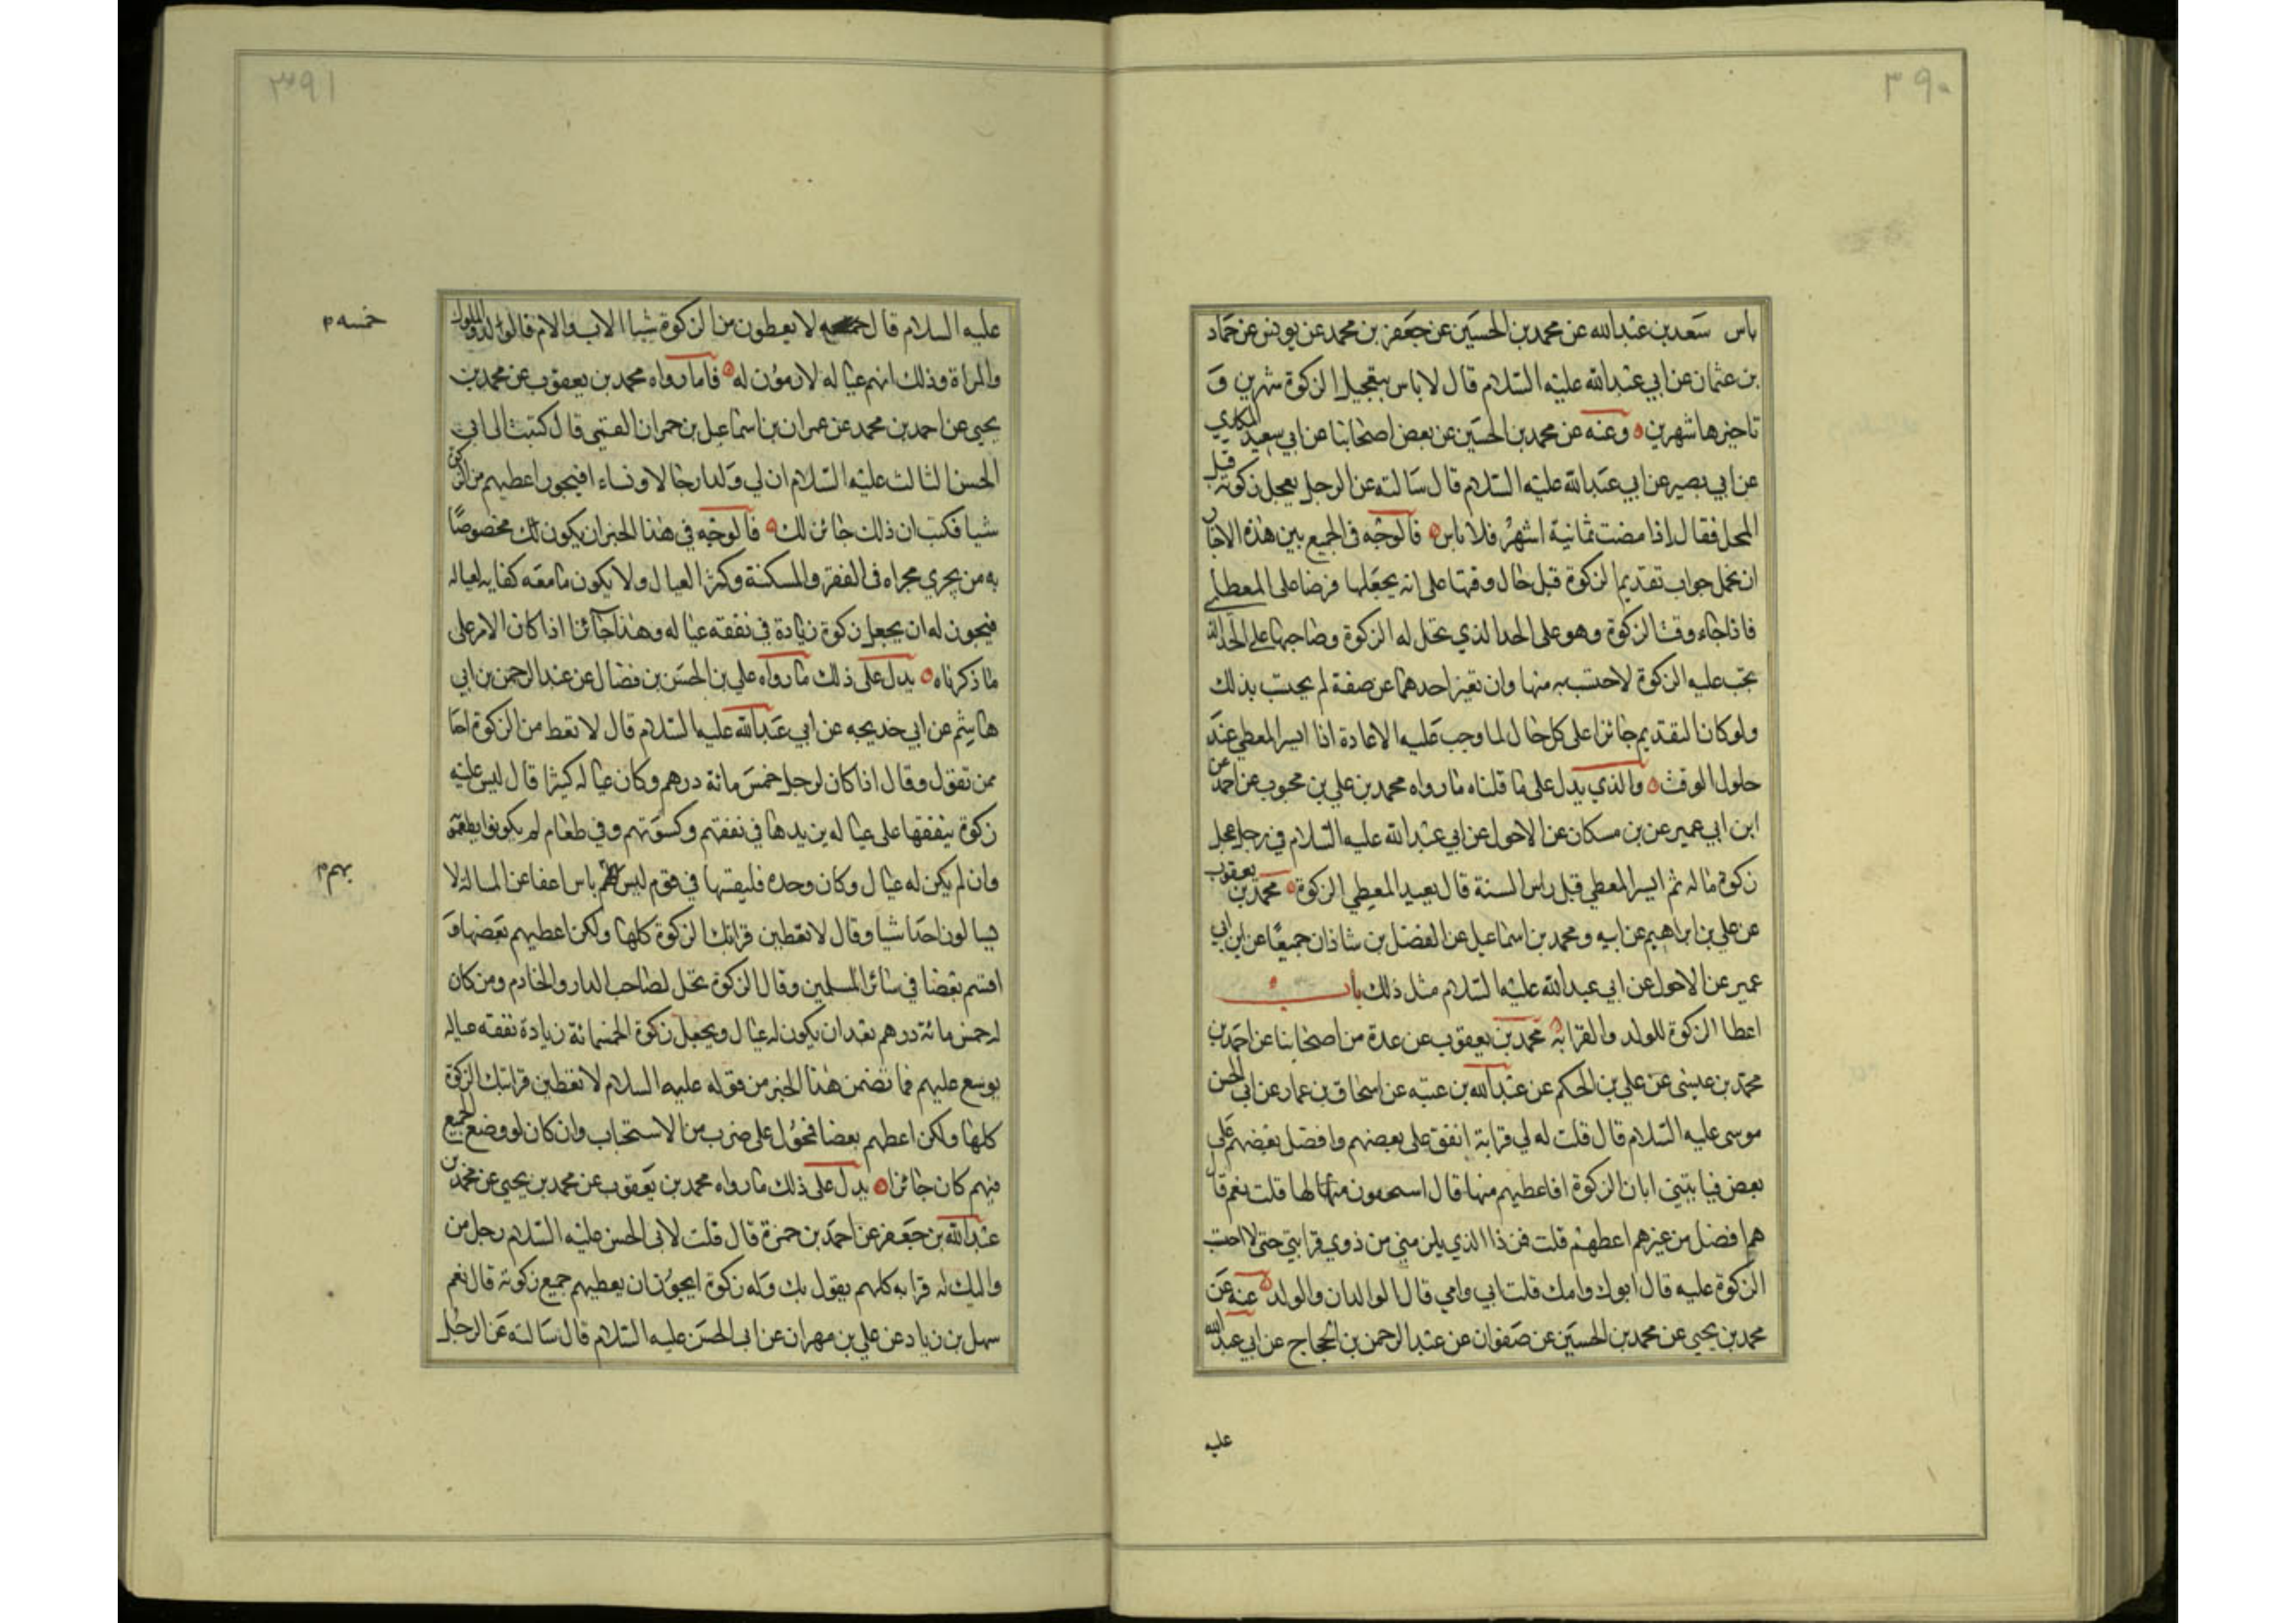 ٣٩٠
باس سعد بن عبد الله عن محمد بن الحسين عن جعفر بن محمد عن يونس عن حماد
بن عثمان عن ابي عبد الله عليه السلام قال لا باس بتعجيل الزكوة شهرين و
تاخيرها شهرين وعنه عن محمد بن الحسين عن بعض اصحابنا عن ابي سعيد المكاري
عن ابي بصير عن ابي عبد الله عليه السلام قال سالته عن الرجل يعجل زكوته قبل
المحل فقال اذا مضت ثمانية اشهر فلا باس فالوجه في الجمع بين هذه الاخبار
ان نحمل جواب تقديم الزكوة قبل حال وقتها على انه يجعلها فرضا على المعطى
فاذا جاء وقت الزكوة وهو على الحد الذي تحل له الزكوة وصاحبها على الحد الذي
تجب عليه الزكوة لاحتسب به منها وان تغير احدهما عن صفة لم يحتسب بذلك
ولو كان التقديم جائزا على كل حال لما وجب عليه الاعادة اذا ايسر المعطي عند
حلول الوقت والذي يدل على ما قلناه ما رواه محمد بن علي بن محبوب عن احمد عن
ابن ابي عمير عن بن مسكان عن الاحول عن ابي عبد الله عليه السلام في رجل عجل
زكوة ماله ثم ايسر المعطي قبل راس السنة قال يعيد المعطي الزكوة محمد بن يعقوب
عن علي بن ابراهيم عن ابيه ومحمد بن اسماعيل عن الفضل بن شاذان جميعا عن ابن ابي
عمير عن الاحول عن ابي عبد الله عليه السلام مثل ذلك باب
اعطا الزكوة للولد والقرابة محمد بن يعقوب عن عدة من اصحابنا عن احمد بن
محمد بن عيسى عن علي بن الحكم عن عبد الله بن عتبه عن اسحاق بن عمار عن ابي الحسن
موسى عليه السلام قال قلت له لي قرابة انفق على بعضهم وافضل بعضهم على
بعض فياتيني ابان الزكوة افاعطيهم منها قال لها قلت نعم قال
هم افضل من غيرهم اعطهم قلت فمن ذا الذي يلزمني من ذوي قرابتي حتى لا احتسب
الزكوة عليه قال ابوك وامك قلت ابي وامي قال الوالدان والولد عنه عن
محمد بن يحيى عن محمد بن الحسين عن صفوان عن عبد الرحمن بن الحجاج عن ابي عبد الله
عليه
٣٩١
عليه السلام قال لا يعطون من الزكوة شيا الاب والام والولد والمملوك
خمسه
والمراة وذلك انهم عياله لازمون له فاما رواه محمد بن يعقوب عن محمد بن
يحيى عن احمد بن محمد عن عمران بن اسماعيل بن حمران القمي قال كتبت الى ابي
الحسن الثالث عليه السلام ان لي ولدا رجالا ونساء افيجوز اعطيهم من الزكوة
شيا فكتب ان ذلك جائز لك فالوجه في هذا الخبر ان يكون ذلك مخصوصا
به من يجري مجراه في الفقر والمسكنة وكثرة العيال ولا يكون ما معه كفايه لعياله
فيجوز له ان يجعل زكوة زيادة في نفقه عياله وهذا جائز اذا كان الامر على
ما ذكرناه يدل على ذلك ما رواه علي بن الحسن بن فضال عن عبد الرحمن بن ابي
هاشم عن ابي خديجه عن ابي عبد الله عليه السلام قال لا تعط من الزكوة احدا
ممن تعول وقال اذا كان لرجل خمس مائة درهم وكان عياله كثيرا قال ليس عليه
زكوة ينفقها على عياله يزيدها في نفقتهم وكسوتهم وفي طعام لم يكونوا يطعمونه
وان لم يكن له عيال وكان وحده فليقسمها في قوم ليس بهم باس اعفا عن المسالة لا
بهم
يسالون احدا شيا وقال لا تعطين قرابتك الزكوة كلها ولكن اعطيهم بعضها و
اقسم بعضا في سائر المسلمين وقال الزكوة تحل لصاحب الدار والخادم ومن كان
له خمس مائة درهم بعد ان يكون له عيال ويجعل زكوة الخمسمائة زيادة نفقه عياله
يوسع عليهم فما تضمن هذا الخبر من قوله عليه السلام لا تعطين قرابتك الزكوة
كلها ولكن اعطهم بعضا فمحمول على ضرب من الاستحباب وان كان لو وضع الجميع
فيهم كان جائزا يدل على ذلك ما رواه محمد بن يعقوب عن محمد بن يحيى عن محمد بن
عبد الله بن جعفر عن احمد بن حمزة قال قلت لابي الحسن عليه السلام رجل من
مواليك له قرابه كلهم يقول بك وله زكوة ايجوز ان يعطيهم جميع زكوته قال نعم
سهل بن زياد عن علي بن مهران عن ابي الحسن عليه السلام قال سالته عن الرجل